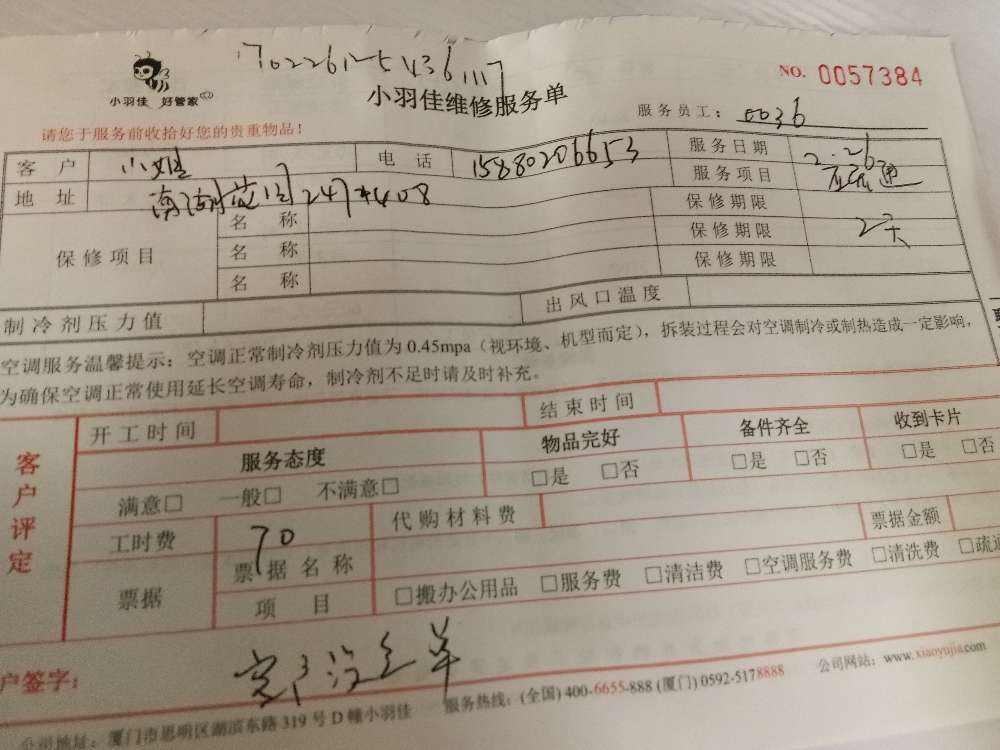 NO. 0057384
小羽佳 好管家
小羽佳维修服务单
服务员工: 0036
请您于服务前收拾好您的贵重物品!
客户 电话 15880206653 服务日期 2.26
地址 247#408 服务项目
保修项目 名称 保修期限
名称 保修期限 2天
名称 保修期限
制冷剂压力值 出风口温度
空调服务温馨提示:空调正常制冷剂压力值为0.45mpa(视环境、机型而定),拆装过程会对空调制冷或制热造成一定影响,
为确保空调正常使用延长空调寿命,制冷剂不足时请及时补充。
客户评定
开工时间 结束时间
服务态度 物品完好 备件齐全 收到卡片
满意□ 一般□ 不满意□ □是 □否 □是 □否 □是 □否
工时费 70 代购材料费 票据金额
票据 票据名称 □搬办公用品 □服务费 □清洁费 □空调服务费 □清洗费 □疏通
项目
户签字:
公司地址:厦门市思明区湖滨东路319号D幢小羽佳 服务热线:(全国)400-6655-888 (厦门)0592-5178888 公司网站:www.xiaoyujia.com